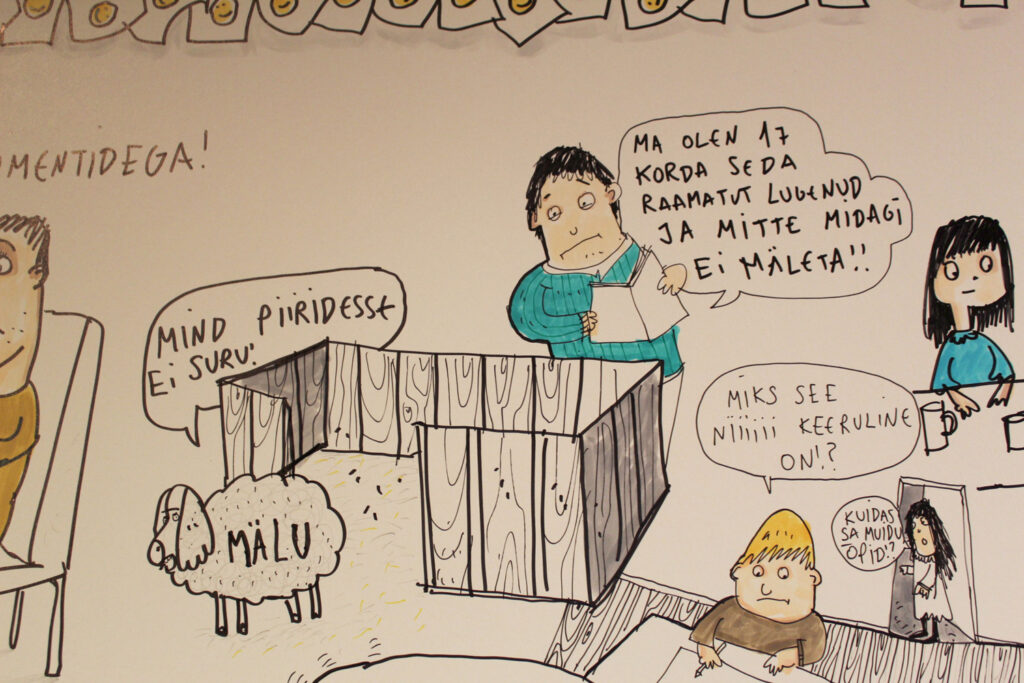 OMENTIDEGA!
MA OLEN 17
KORDA SEDA
RAAMATUT LUGENUD
JA MITTE MIDAGI
EI MÄLETA!!
MIND PIIRIDESSE
EI SURU!
MÄLU
MIKS SEE
NIIIIII KEERULINE
ON!?
KUIDAS
SA MUIDU
ÕPID!?